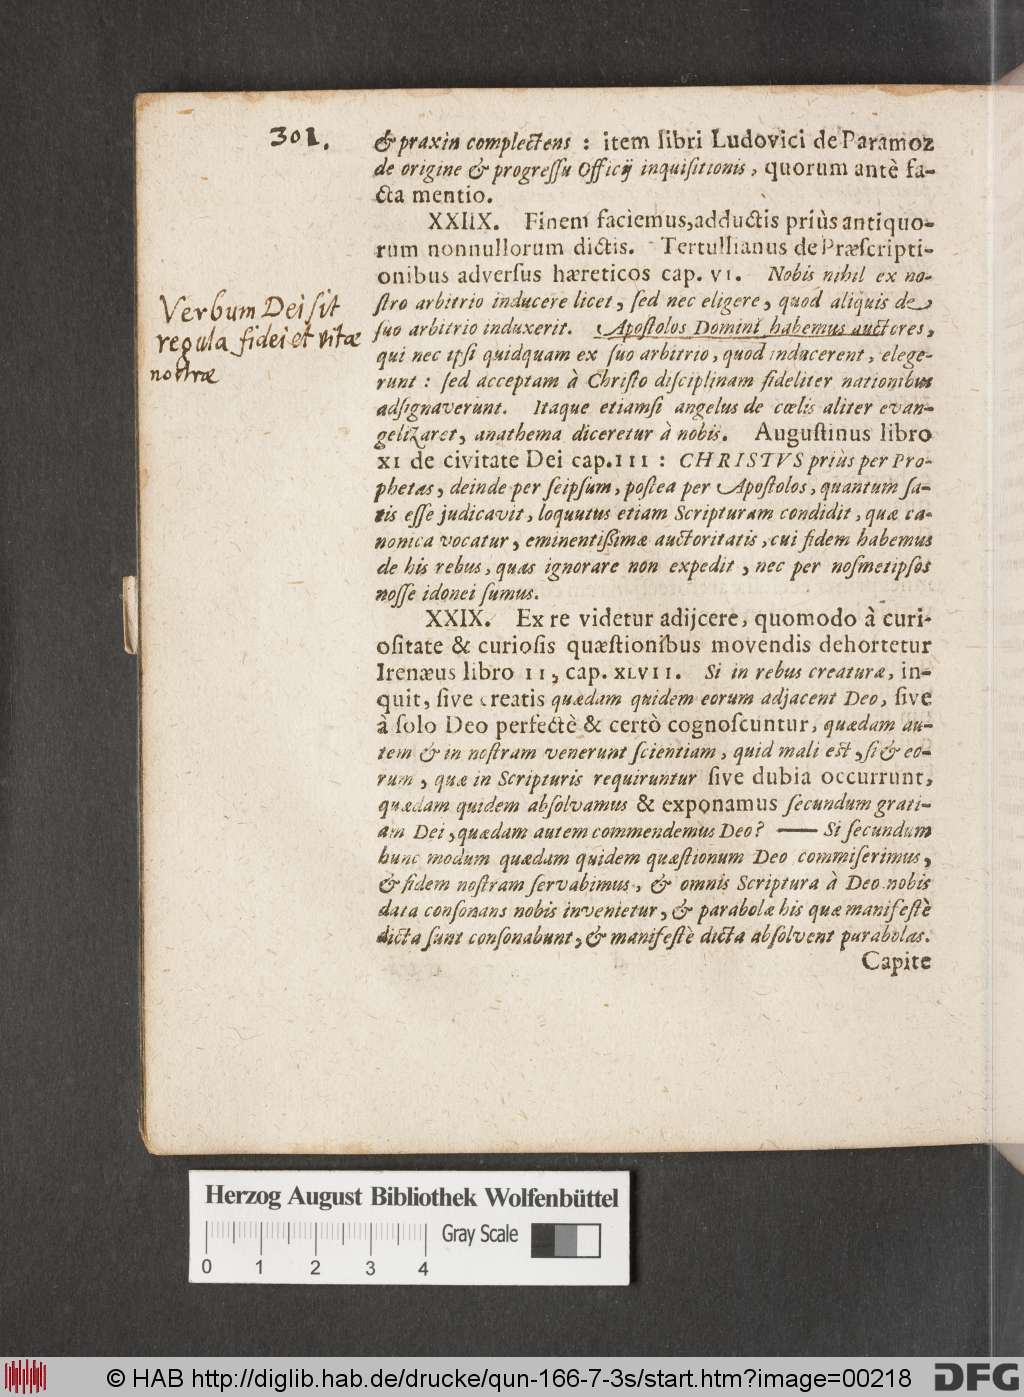 301.
& praxin complectens : item libri Ludovici de Paramoz
de origine & progreſſu Officij inquiſitionis, quorum antè fa-
cta mentio.
XXIIX. Finem faciemus, adductis priùs antiquo-
rum nonnullorum dictis. Tertullianus de Præſcripti-
onibus adverſus hæreticos cap. VI. Nobis nihil ex no-
ſtro arbitrio inducere licet, ſed nec eligere, quod aliquis de
ſuo arbitrio induxerit. Apoſtolos Domini habemus auctores,
qui nec ipſi quidquam ex ſuo arbitrio, quod inducerent, elege-
runt : ſed acceptam à Chriſto diſciplinam fideliter nationibus
adſignaverunt. Itaque etiamſi angelus de cœlis aliter evan-
gelizaret, anathema diceretur à nobis. Auguſtinus libro
XI de civitate Dei cap. III : CHRISTVS priùs per Pro-
phetas, deinde per ſeipſum, poſtea per Apoſtolos, quantum ſa-
tis eſſe judicavit, loquutus etiam Scripturam condidit, quæ ca-
nonica vocatur, eminentiſſimæ auctoritatis, cui fidem habemus
de his rebus, quas ignorare non expedit, nec per noſmetipſos
noſſe idonei ſumus.
XXIX. Ex re videtur adijcere, quomodo à curi-
oſitate & curioſis quæſtionibus movendis dehortetur
Irenæus libro II, cap. XLVII. Si in rebus creaturæ, in-
quit, ſive creatis quædam quidem eorum adjacent Deo, ſive
à ſolo Deo perfectè & certò cognoſcuntur, quædam au-
tem & in noſtram venerunt ſcientiam, quid mali eſt, ſi & eo-
rum, quæ in Scripturis requiruntur ſive dubia occurrunt,
quædam quidem abſolvamus & exponamus ſecundum grati-
am Dei, quædam autem commendemus Deo? — Si ſecundum
hunc modum quædam quidem quæſtionum Deo commiſerimus,
& fidem noſtram ſervabimus, & omnis Scriptura à Deo nobis
data conſonans nobis invenietur, & parabolæ his quæ manifeſtè
dicta ſunt conſonabunt, & manifeſtè dicta abſolvent parabolas.
Capite
Verbum Dei ſit
regula fidei et vitæ
nostræ
Herzog August Bibliothek Wolfenbüttel
Gray Scale
0 1 2 3 4
© HAB http://diglib.hab.de/drucke/qun-166-7-3s/start.htm?image=00218
DFG